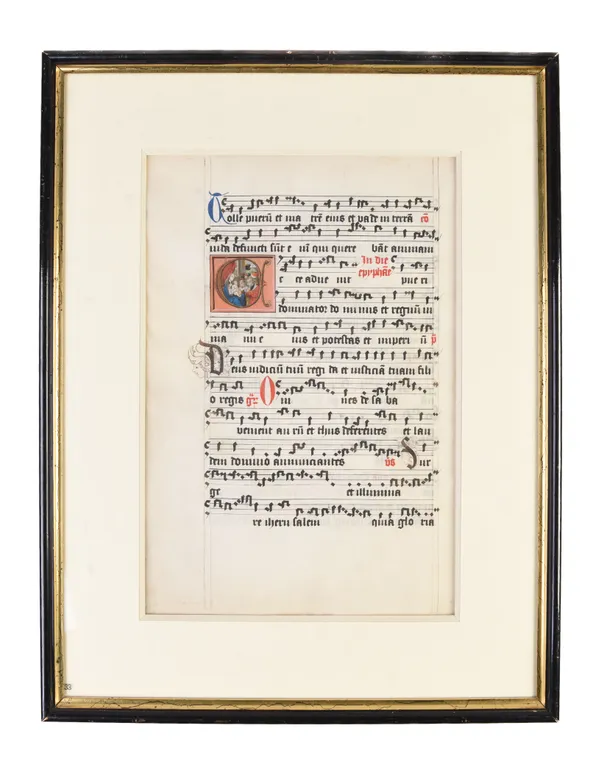 Tolle pueru et ma trē eius et vade in terrā
iuda defuncti sūt e nī qui quere bāt animam
In die
E c ce adue nit pue ri
epyphāie
dominator do mi nus et regnū in
ma nu e ius et potestas et imperi ū p̄
Deus iudiciū tuū regi da et iusticiā tuam fili
o regis gr̄ Om nes de sa ba
venient au rū et thus deferentes et lau
dem domino annunciantes vs Sur
ge et illumina
re iheru salem quia glo ria